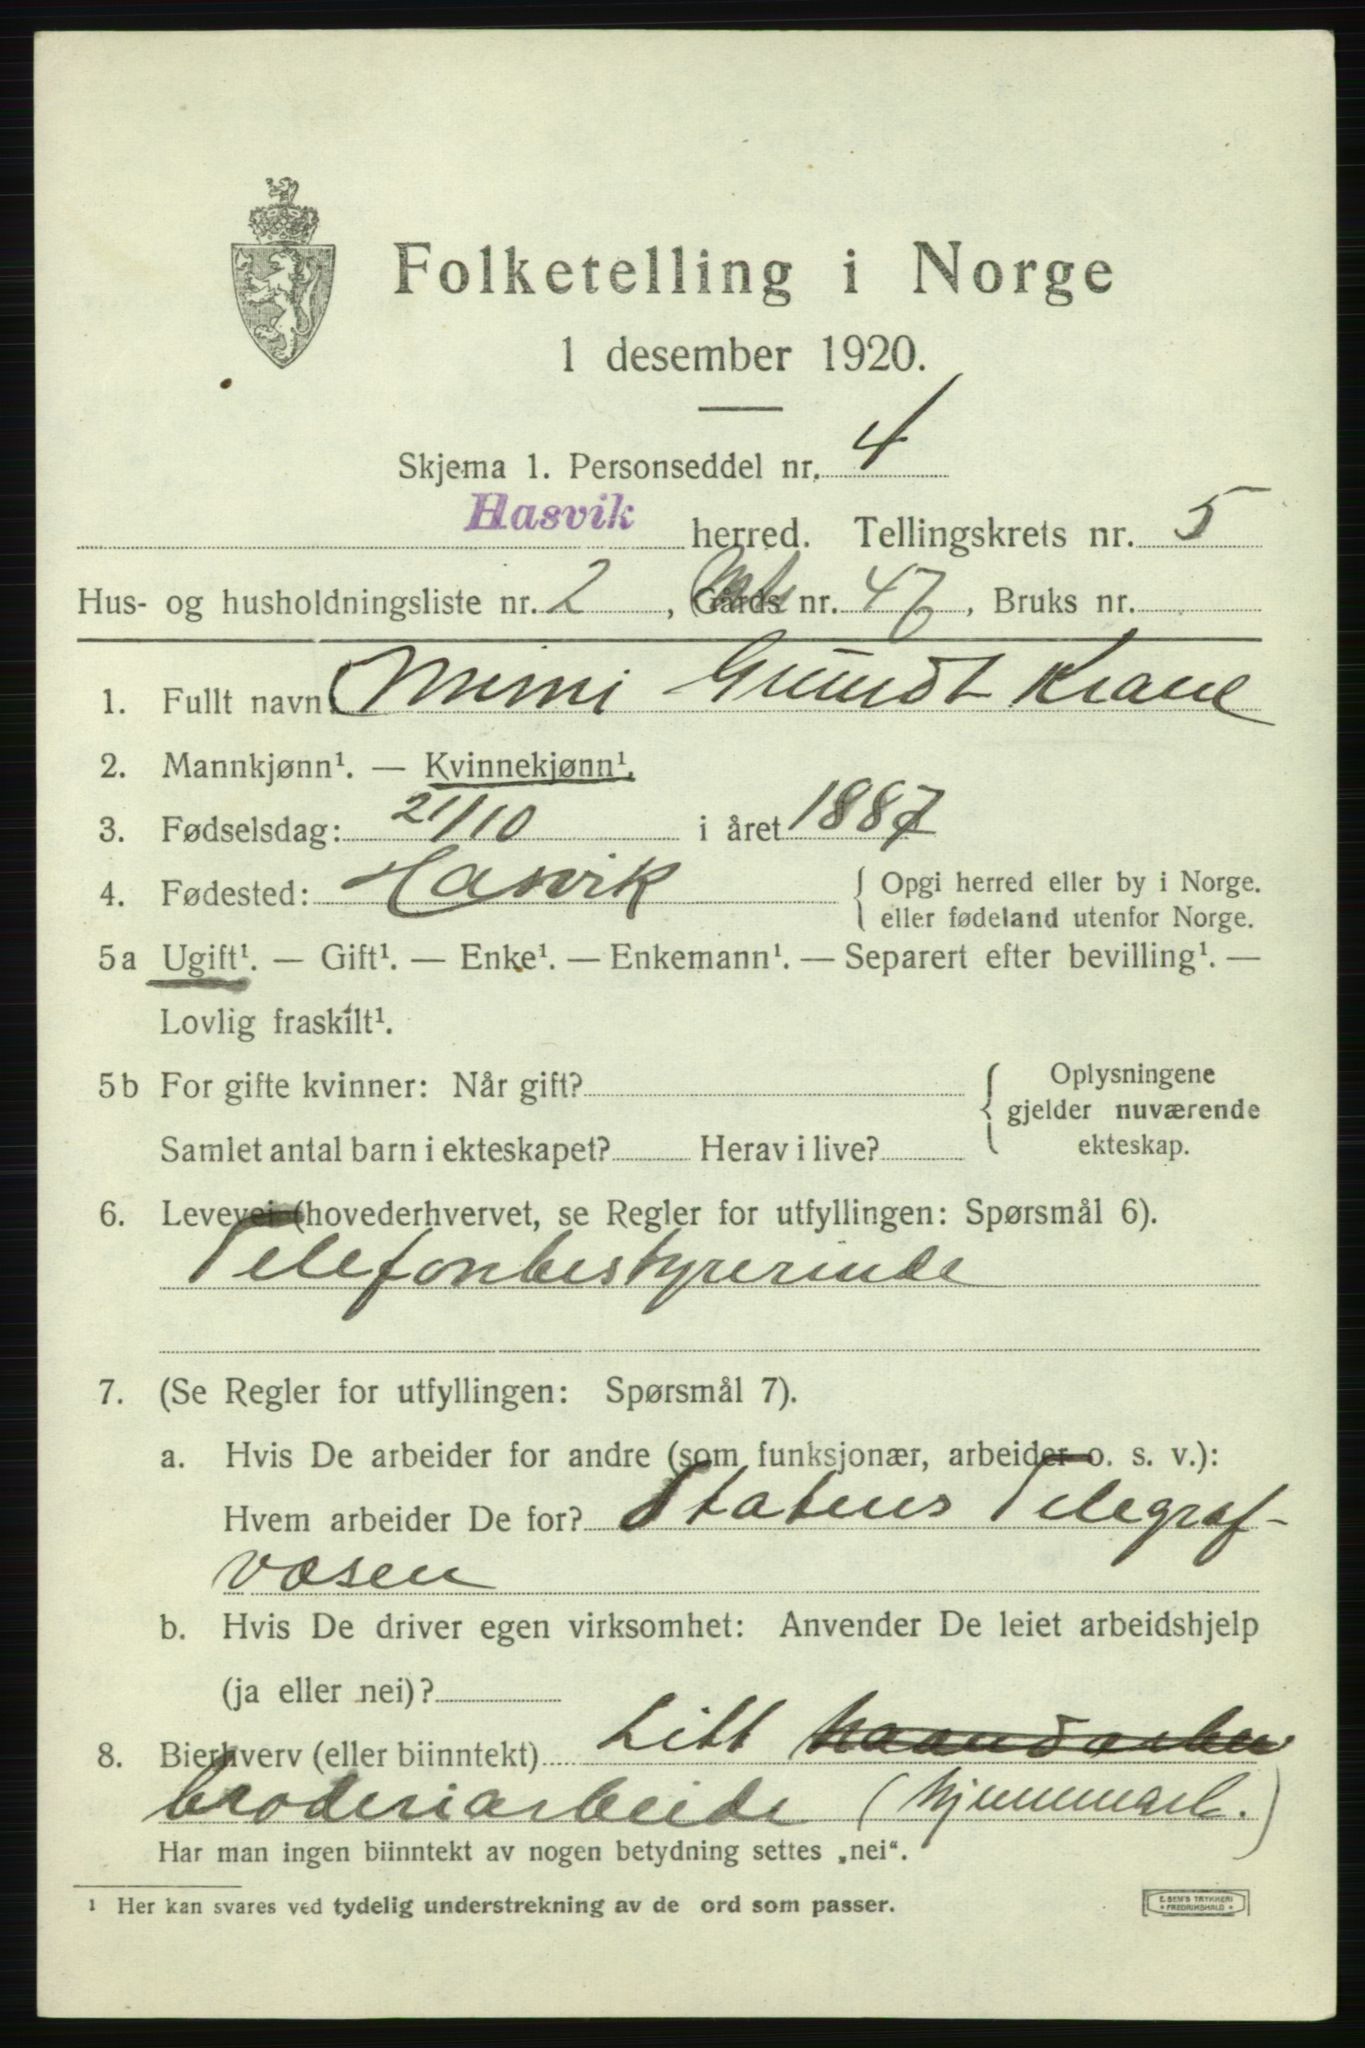 Folketelling i Norge
1 desember 1920.
Skjema 1. Personseddel nr. 4
Hasvik herred. Tellingskrets nr. 5
Hus- og husholdningsliste nr. 2, Gards nr. 47, Bruks nr.
1. Fullt navn Mimi Grundt Krane
2. Mannkjønn¹. — Kvinnekjønn¹.
3. Fødselsdag: 21/10 i året 1887
4. Fødested: Hasvik { Opgi herred eller by i Norge.
eller fødeland utenfor Norge.
5a Ugift¹. — Gift¹. — Enke¹. — Enkemann¹. — Separert efter bevilling¹. —
Lovlig fraskilt¹.
5b For gifte kvinner: Når gift? { Oplysningene
gjelder nuværende
Samlet antal barn i ekteskapet? Herav i live? ekteskap.
6. Levevei (hovederhvervet, se Regler for utfyllingen: Spørsmål 6).
Telefonbestyrerinde
7. (Se Regler for utfyllingen: Spørsmål 7).
a. Hvis De arbeider for andre (som funksjonær, arbeider o. s. v.):
Hvem arbeider De for? Statens Telegraf-
væsen
b. Hvis De driver egen virksomhet: Anvender De leiet arbeidshjelp
(ja eller nei)?
8. Bierhverv (eller biinntekt) Litt haandarbeι
broderiarbeide (hjemmearb.)
Har man ingen biinntekt av nogen betydning settes „nei“.
¹ Her kan svares ved tydelig understrekning av de ord som passer.
E. SEM'S TRYKKERI
* FREDRIKSHALD *